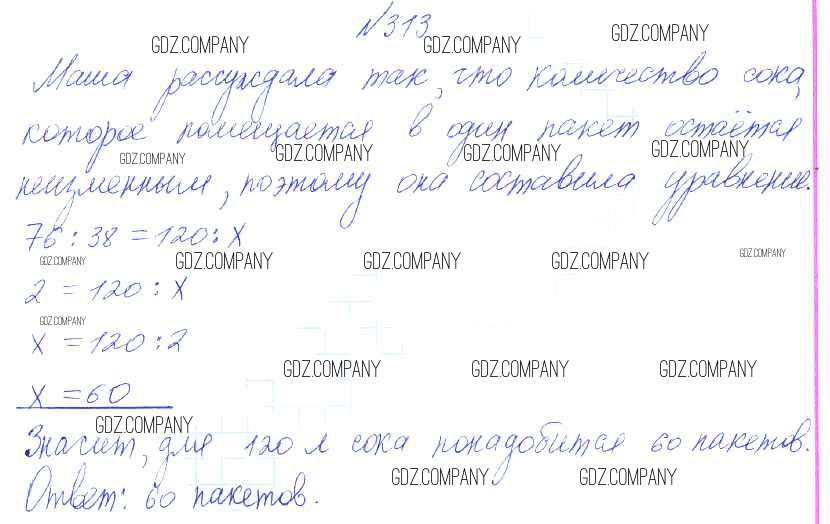 №313
GDZ.COMPANY GDZ.COMPANY GDZ.COMPANY
Маша рассуждала так, что количество сока,
которое помещается в один пакет остаётся
GDZ.COMPANY GDZ.COMPANY GDZ.COMPANY GDZ.COMPANY
неизменным, поэтому она составила уравнение.
76 : 38 = 120 : x
GDZ.COMPANY GDZ.COMPANY GDZ.COMPANY GDZ.COMPANY GDZ.COMPANY
2 = 120 : x
GDZ.COMPANY
x = 120 : 2
GDZ.COMPANY GDZ.COMPANY GDZ.COMPANY
x = 60
GDZ.COMPANY
Значит, для 120 л сока понадобится 60 пакетов.
GDZ.COMPANY GDZ.COMPANY
Ответ: 60 пакетов.